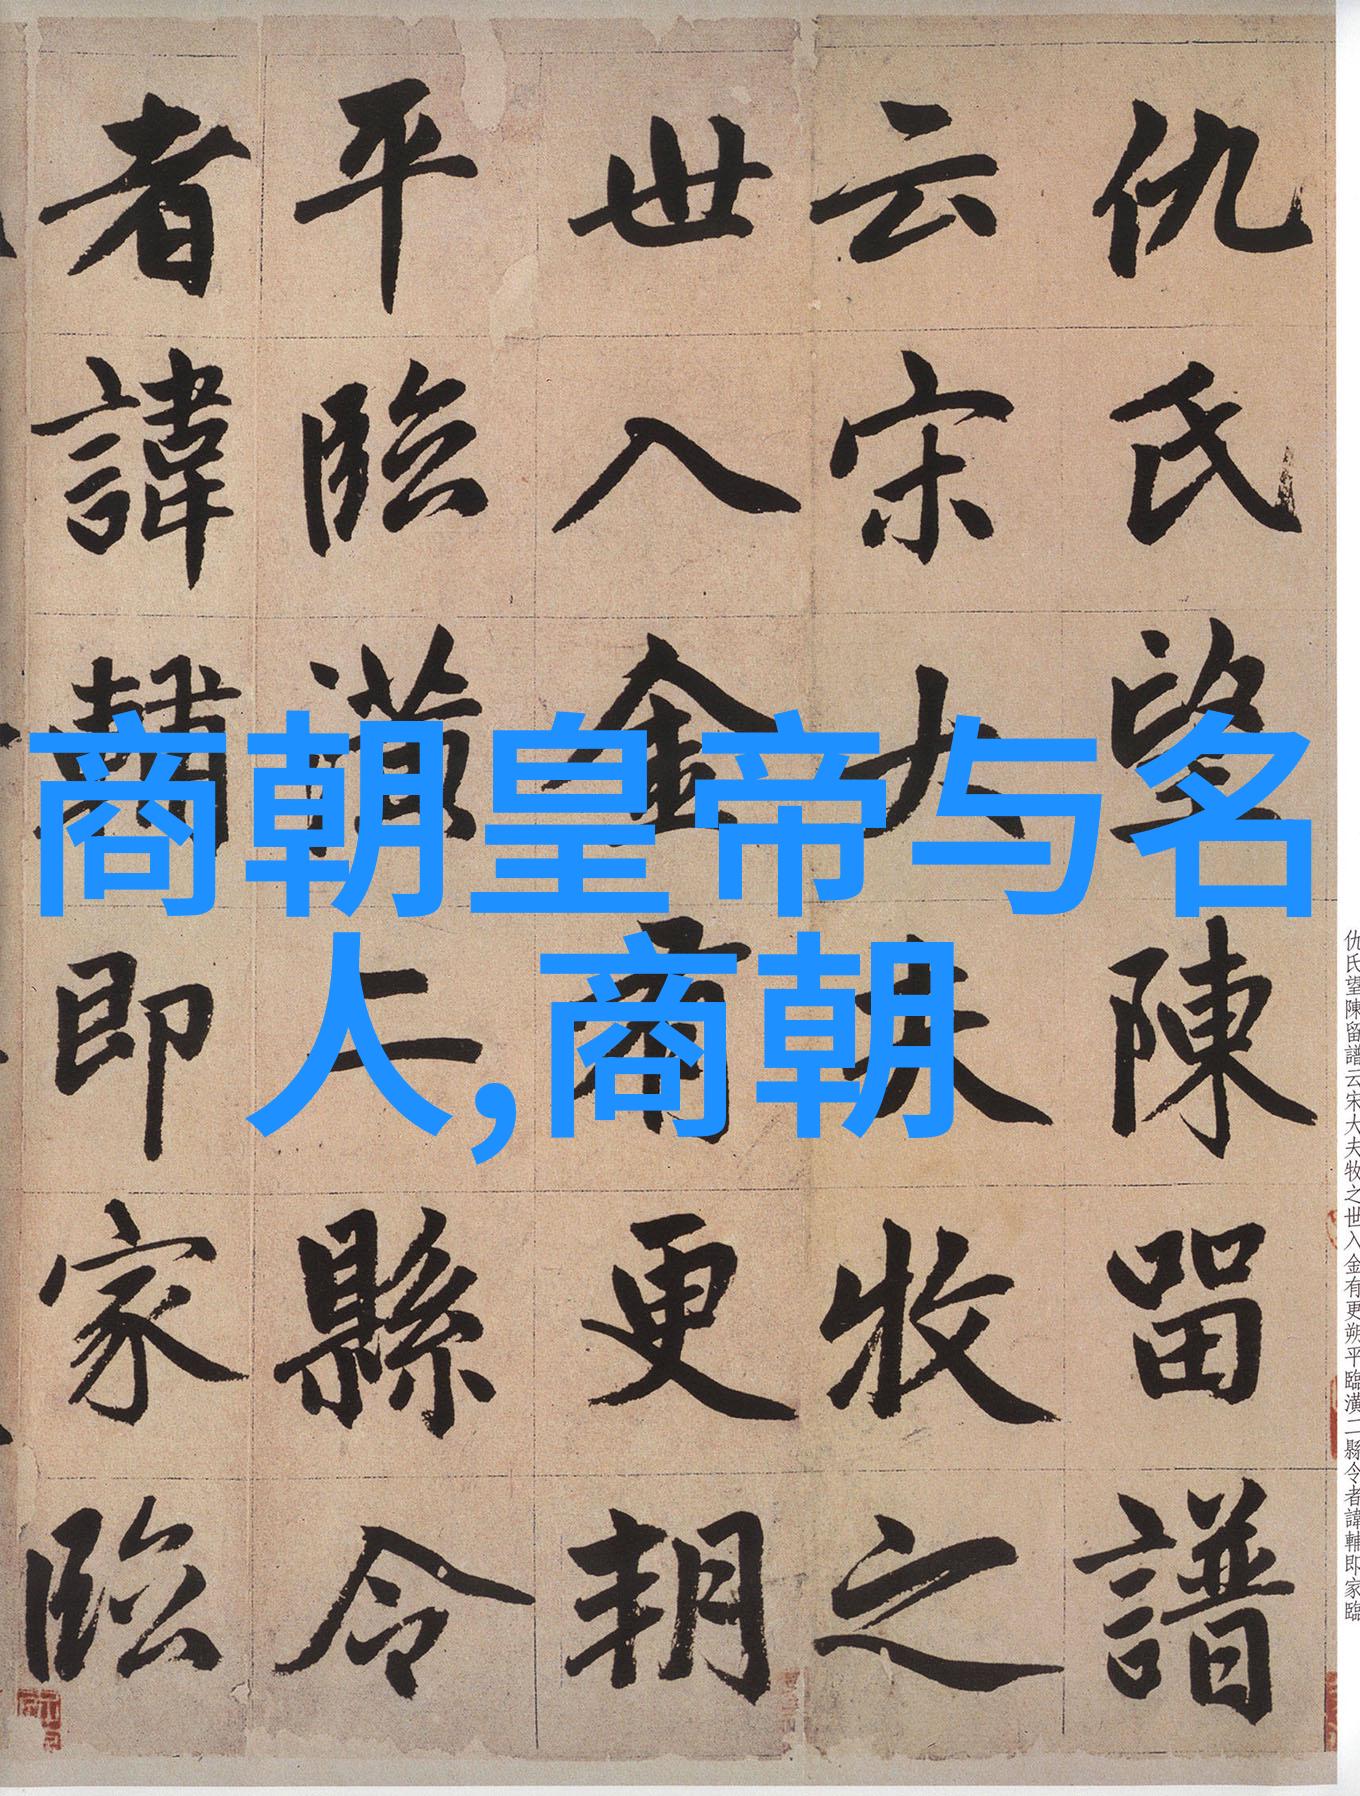 商朝皇帝与名
人,商朝
仇氏望陳留譜
云宋大夫牧之
世入金有更朔
平臨潢二縣令
者諱輔即家臨
仇氏望陳留譜云宋大夫牧之世入金有更朔平臨潢二縣令者諱輔即家臨